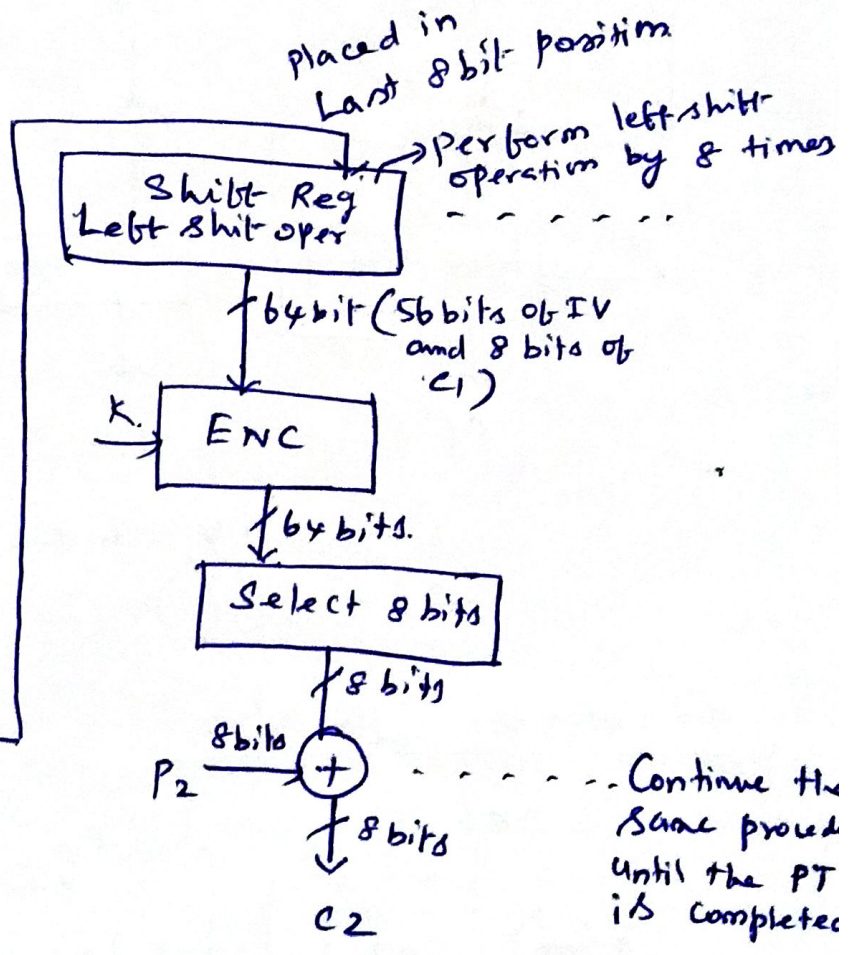 placed in
Last 8 bit position
Perform left shift
operation by 8 times
Shift Reg
Left Shit oper
64 bit (56 bits of IV
and 8 bits of
C1)
K.
ENC
64 bits.
Select 8 bits
8 bits
8 bits
P2
+
Continue the
same proced
until the PT
is completed
8 bits
C2